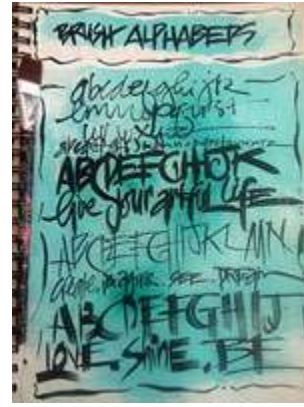 BRUSH ALPHABETS
abcdefghijk
lmnopqrst
ABCDEFGHIJK
live your artful life
ABCDEFGHIJKLMN
create. imagine. SEE.
ABCDEFGHIJ
LOVE. Shine. BE